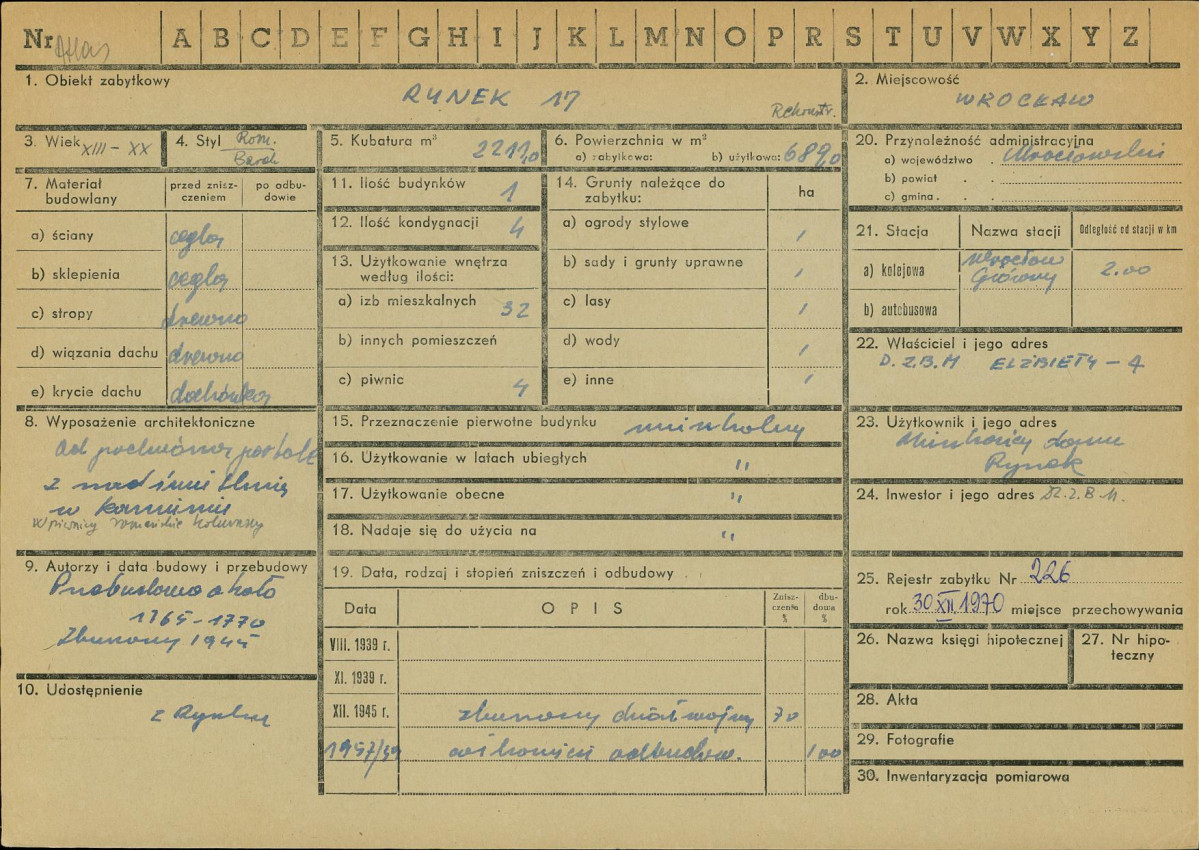 Nr Atlas A B C D E F G H I J K L M N O P R S T U V W X Y Z
1. Obiekt zabytkowy
RYNEK 17
Rekonstr.
2. Miejscowość
WROCŁAW
3. Wiek XIII – XX
4. Styl Rom.
Barok
5. Kubatura m³ 2211,0
6. Powierzchnia w m²
a) zabytkowa: b) użytkowa: 689,0
7. Materiał budowlany
przed znisz-
czeniem
po odbu-
dowie
a) ściany cegła
b) sklepienia cegła
c) stropy drewno
d) wiązania dachu drewno
e) krycie dachu dachówka
8. Wyposażenie architektoniczne
Od portal
z
w kamieniu
W piwnicy romańskie
9. Autorzy i data budowy i przebudowy
Przebudowa około
1765–1770
Zburzony 1945
10. Udostępnienie
z Rynku
11. Ilość budynków 1
12. Ilość kondygnacji 4
13. Użytkowanie wnętrza
według ilości:
a) izb mieszkalnych 32
b) innych pomieszczeń
c) piwnic 4
14. Grunty należące do
zabytku:
ha
a) ogrody stylowe /
b) sady i grunty uprawne /
c) lasy /
d) wody /
e) inne /
15. Przeznaczenie pierwotne budynku mieszkalny
16. Użytkowanie w latach ubiegłych "
17. Użytkowanie obecne "
18. Nadaje się do użycia na "
19. Data, rodzaj i stopień zniszczeń i odbudowy
Data OPIS Znisz-
czenia
%
dbu-
dowa
%
VIII. 1939 r.
XI. 1939 r.
XII. 1945 r. zburzony dział. wojny 70
1957/59 odbudow. 100
20. Przynależność administracyjna
a) województwo Wrocławskie
b) powiat
c) gmina
21. Stacja Nazwa stacji Odległość od stacji w km
a) kolejowa Wrocław
Główny 2.00
b) autobusowa
22. Właściciel i jego adres
D.Z.B.M ELŻBIETY – 4
23. Użytkownik i jego adres
Mieszkańcy domu
Rynek
24. Inwestor i jego adres D.Z.B.M.
25. Rejestr zabytku Nr 226
rok 30 XII 1970 miejsce przechowywania
26. Nazwa księgi hipotecznej
27. Nr hipo-
teczny
28. Akta
29. Fotografie
30. Inwentaryzacja pomiarowa